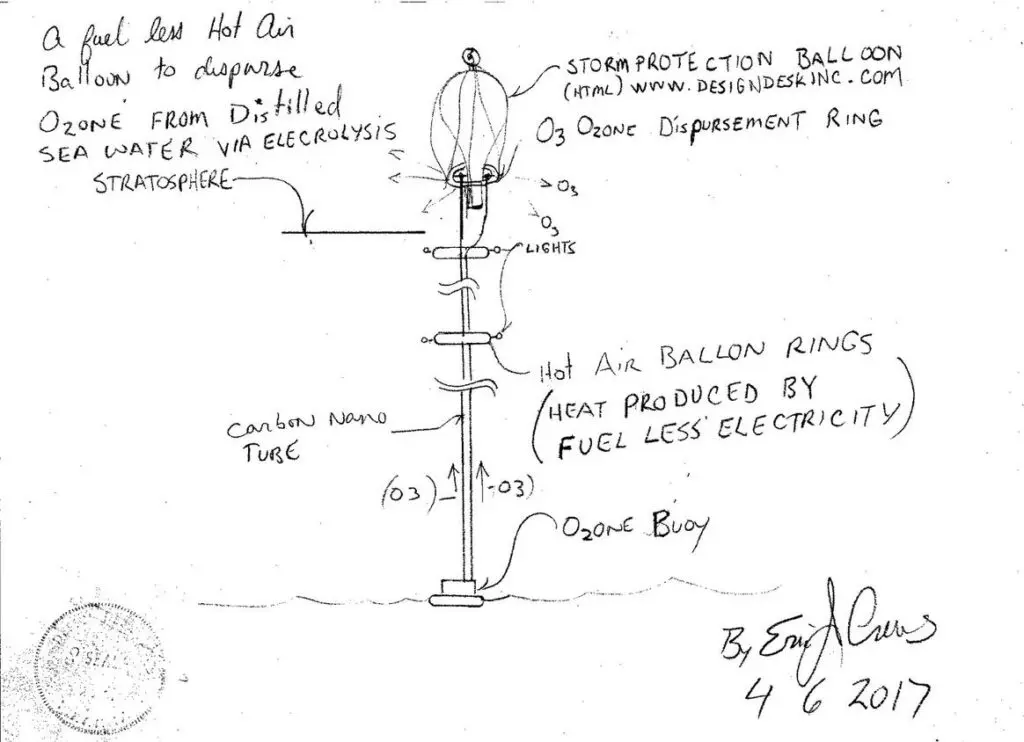 A fuel less Hot Air
Balloon to dispurse
Ozone from Distilled
SEA WATER VIA ELECROLYSIS
STRATOSPHERE
STORM PROTECTION BALLOON
(HTML) WWW.DESIGNDESKINC.COM
O3 OZONE DISPURSEMENT RING
O3
O3
LIGHTS
Hot AIR BALLON RINGS
(HEAT PRODUCED BY
FUEL LESS ELECTRICITY)
CARBON NANO
TUBE
(O3)
O3)
OZONE BUOY
By
4 6 2017
SEAL